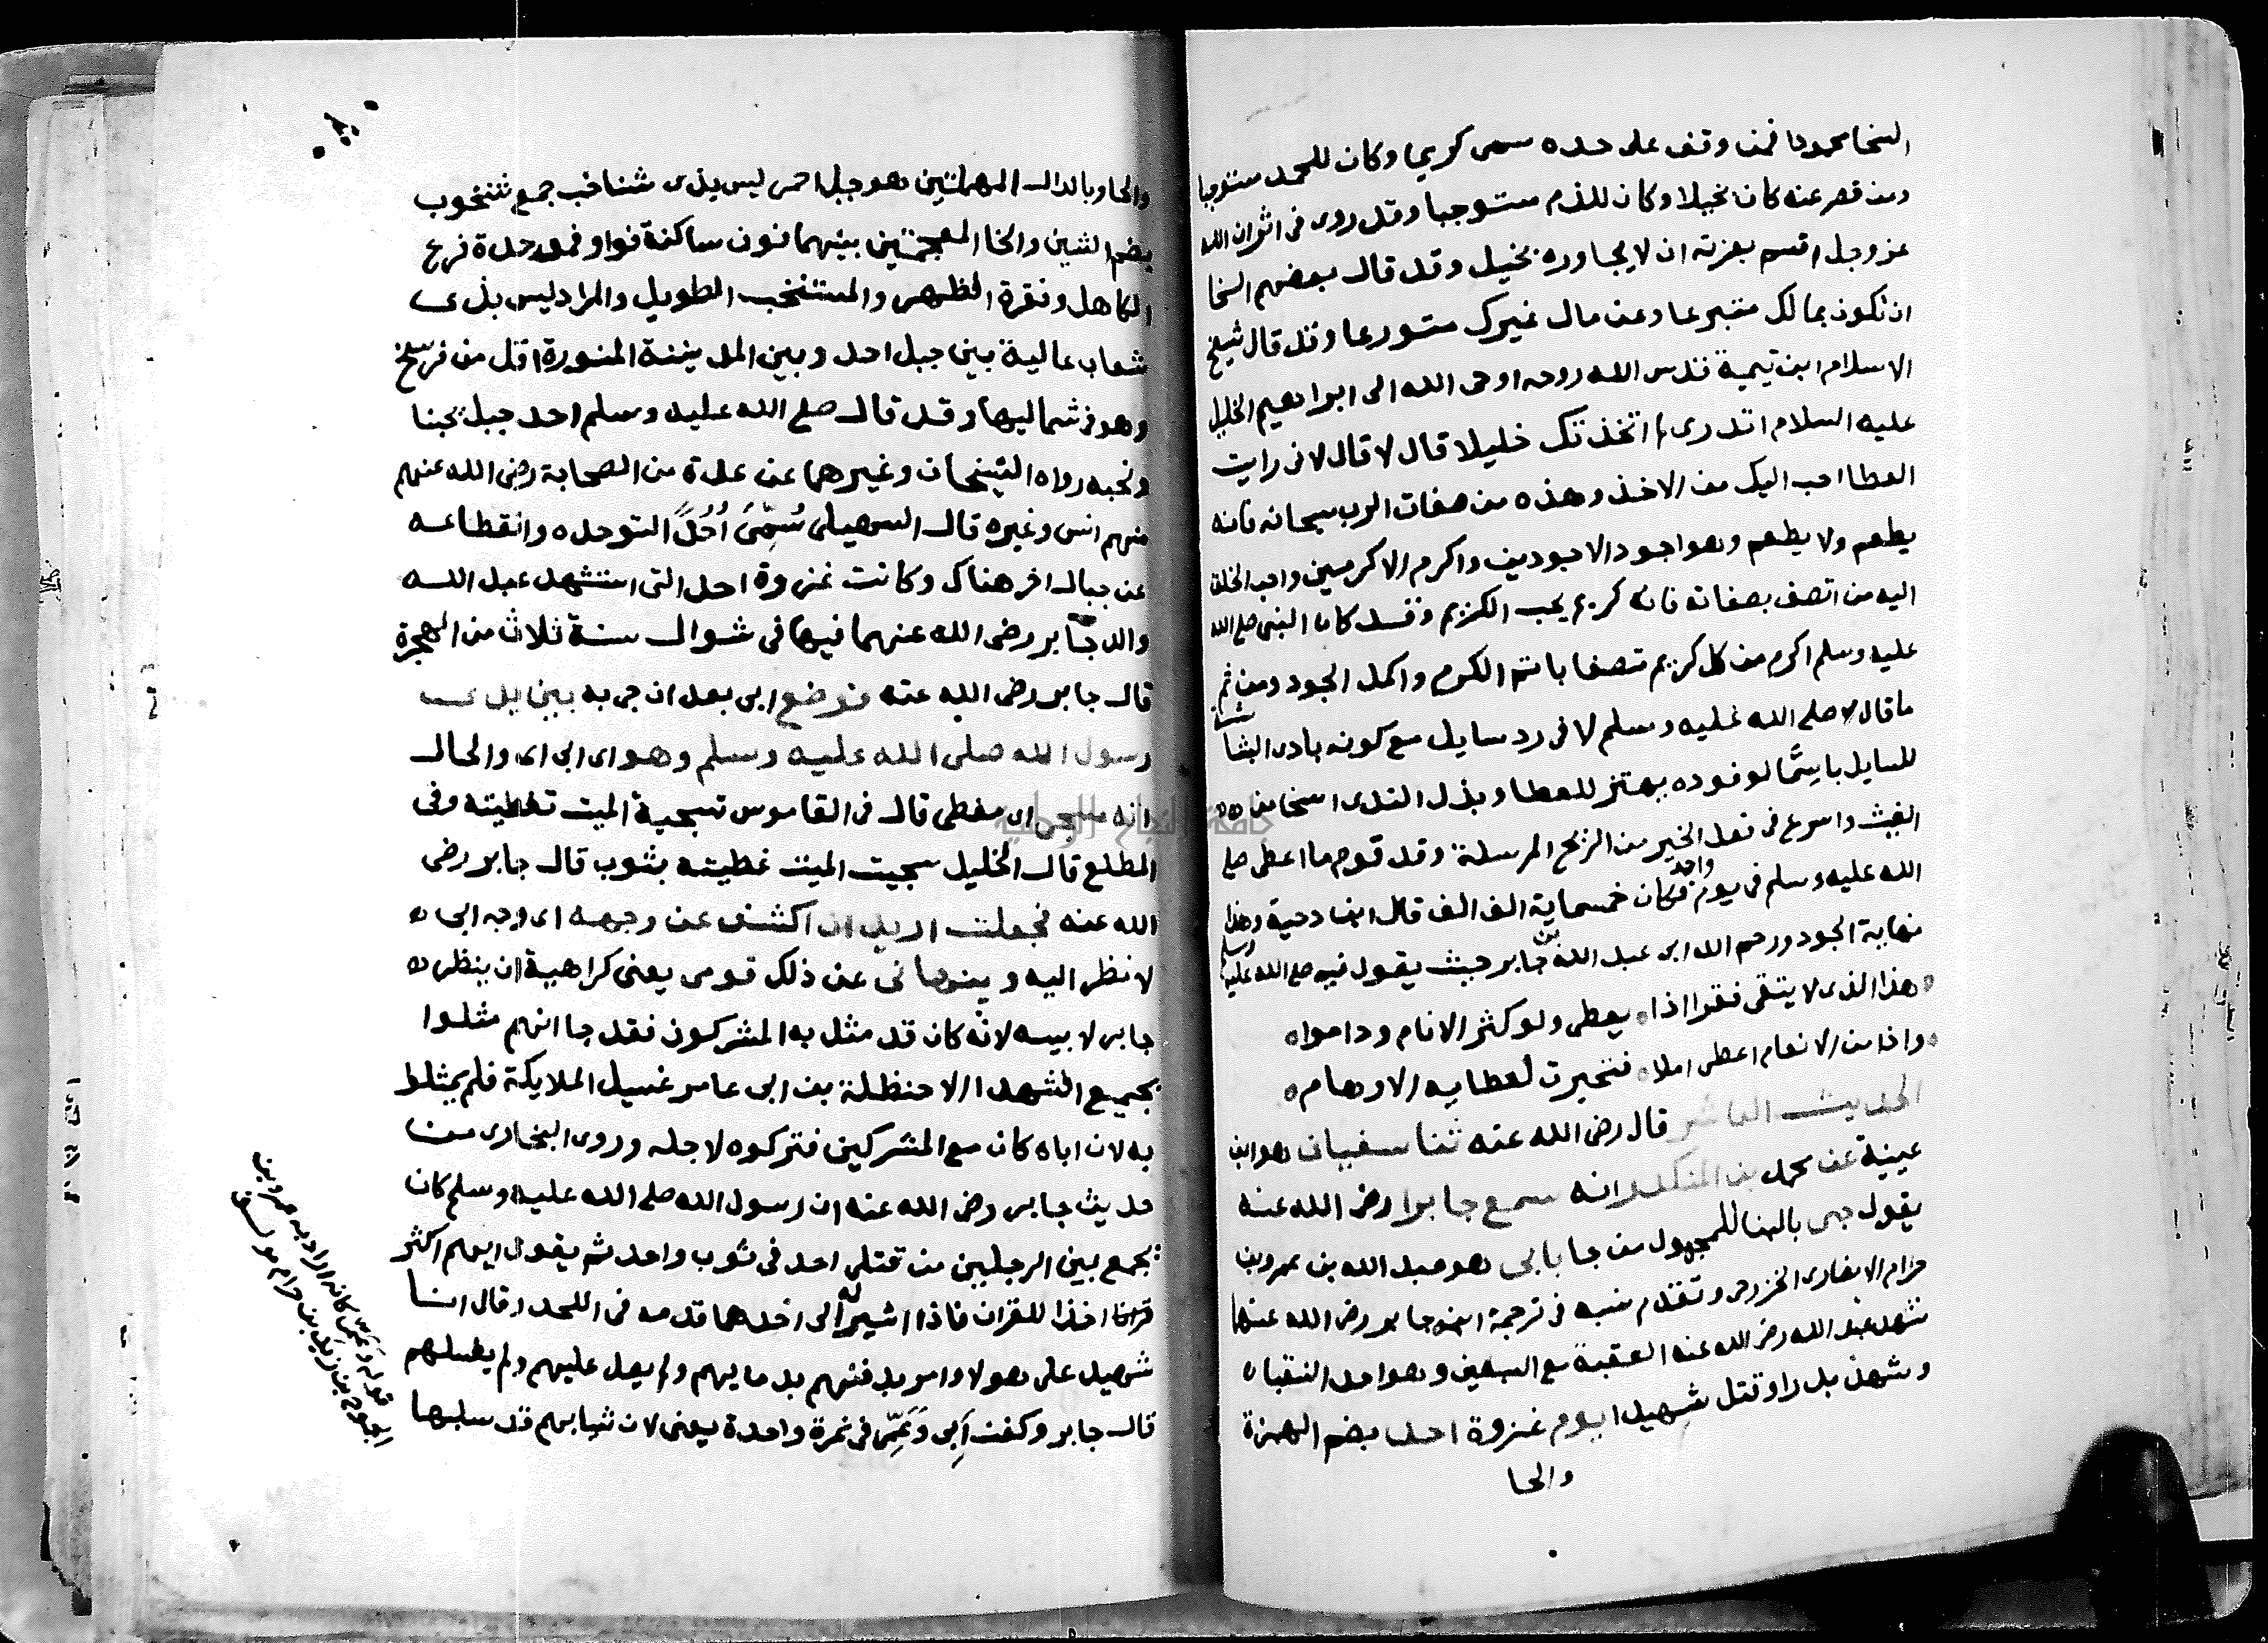 السخا محمودا فمن وقف على حده سمى كريما وكان للحمد مستوجبا
ومن قصر عنه كان بخيلا وكان للذم مستوجبا وقد روى فى اثر ان الله
عز وجل اقسم بعزته ان لا يجاوره بخيل وقد قال بعضهم السخا
ان تكون بمالك متبرعا وعن مال غيرك متورعا وقد قال شيخ
الاسلام ابن تيمية قدس الله روحه اوحى الله الى ابراهيم الخليل
عليه السلام اتدرى لم اتخذتك خليلا قال لا قال لانى رايت
العطا احب اليك من الاخذ وهذه من صفات الرب سبحانه فانه
يطعم ولا يطعم وهو اجود الاجودين واكرم الاكرمين واحب الخلق
اليه من اتصف بصفاته فانه كريم يحب الكريم وقد كان النبى صلى الله
عليه وسلم اكرم من كل كريم متصفا باتم الكرم واكمل الجود ومن ثم
ما قال لا صلى الله عليه وسلم لا فى رد سايل مع كونه بادى البشاشة
للسايل باسما لوفوده يهتز للعطا وبذل الندى اسخا من
الغيث واسرع فى فعل الخير من الريح المرسلة وقد قوم ما اعطى صلى
الله عليه وسلم فى يوم واحد فكان خمسماية الف الف قال ابن دحية وهذا
نهاية الجود ورحم الله ابى عبد الله بن جابر حيث يقول فيه صلى الله عليه وسلم
هذا الذى لا يتقى فقرا اذا ه يعطى ولو كثر الانام وداموا ه
واذا من الانعام اعطى املا ه فتحيرت لعطايه الاوهام ه
الحديث العاشر قال رضى الله عنه ثنا سفيان هو ابن
عيينة عن محمد بن المنكدر انه سمع جابرا رضى الله عنه
يقول جى بالبنا للمجهول من جا بابى هو عبد الله بن عمرو بن
حرام الانصارى الخزرجى وتقدم نسبه فى ترجمة ابنه جابر رضى الله عنهما
شهد عبد الله رضى الله عنه العقبة مع السبعين وهو احد النقباء
وشهد بدرا وقتل شهيدا يوم غزوة احد بضم الهمزة
والحا
والحا وبالدال المهملتين هو جبل احمر ليس بذى شناخب جمع شنخوب
بضم الشين والخا المعجمتين بينهما نون ساكنة فواو فموحدة فرع
الكاهل وفقرة الظهر والمشنخب الطويل والمراد ليس بذى
شعاب عالية بين جبل احد وبين المدينة المنورة اقل من فرسخ
وهو فى شماليها وقد قال صلى الله عليه وسلم احد جبل يحبنا
ونحبه رواه الشيخان وغيرهما عن عدة من الصحابة رضى الله عنهم
منهم انس وغيره قال السهيلى سُمِّىَ اُحُدًا لتوحده وانقطاعه
عن جبال اخر هناك وكانت غزوة احد التى استشهد عبد الله
والد جابر رضى الله عنهما فيها فى شوال سنة ثلاث من الهجرة
قال جابر رضى الله عنه فوضع ابى بعد ان جى به بين يدى
رسول الله صلى الله عليه وسلم وهو اى ابى اى والحال
انه مسجى اى مغطى قال فى القاموس تسجية الميت تغطيته وفى
المطلع قال الخليل سجيت الميت غطيته بثوب قال جابر رضى
الله عنه فجعلت اريد ان اكشف عن وجهه اى وجه ابى ه
لانظر اليه وينهانى عن ذلك قومى يعنى كراهية ان ينظر ه
جابر لابيه لانه كان قد مثل به المشركون فقد جا انهم مثلوا
بجميع الشهدا الا حنظلة بن ابى عامر غسيل الملايكة فلم يمثلوا
به لان اباه كان مع المشركين فتركوه لاجله وروى البخارى من
حديث جابر رضى الله عنه ان رسول الله صلى الله عليه وسلم كان
يجمع بين الرجلين من قتلى احد فى ثوب واحد ثم يقول ايهم اكثر
اخذا للقران فاذا اشير له الى احدهما قدمه فى اللحد وقال انا
شهيد على هولا وامر بدفنهم بدمايهم ولم يصل عليهم ولم يغسلهم
قال جابر وكفن اَبِى وَعَمِّى فى نمرة واحدة يعنى لان ثيابهم قد سلبها
قوله وعمى كانه اراد به عمرو بن
الجموح بن زيد بن حرام
جامعة النجاح الوطنية